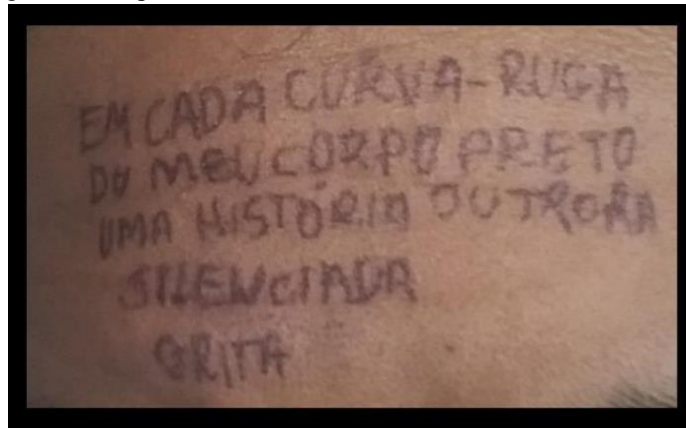 EM CADA CURVA-RUGA
DO MEU CORPO PRETO
UMA HISTÓRIA OUTRORA
SILENCIADA
GRITA